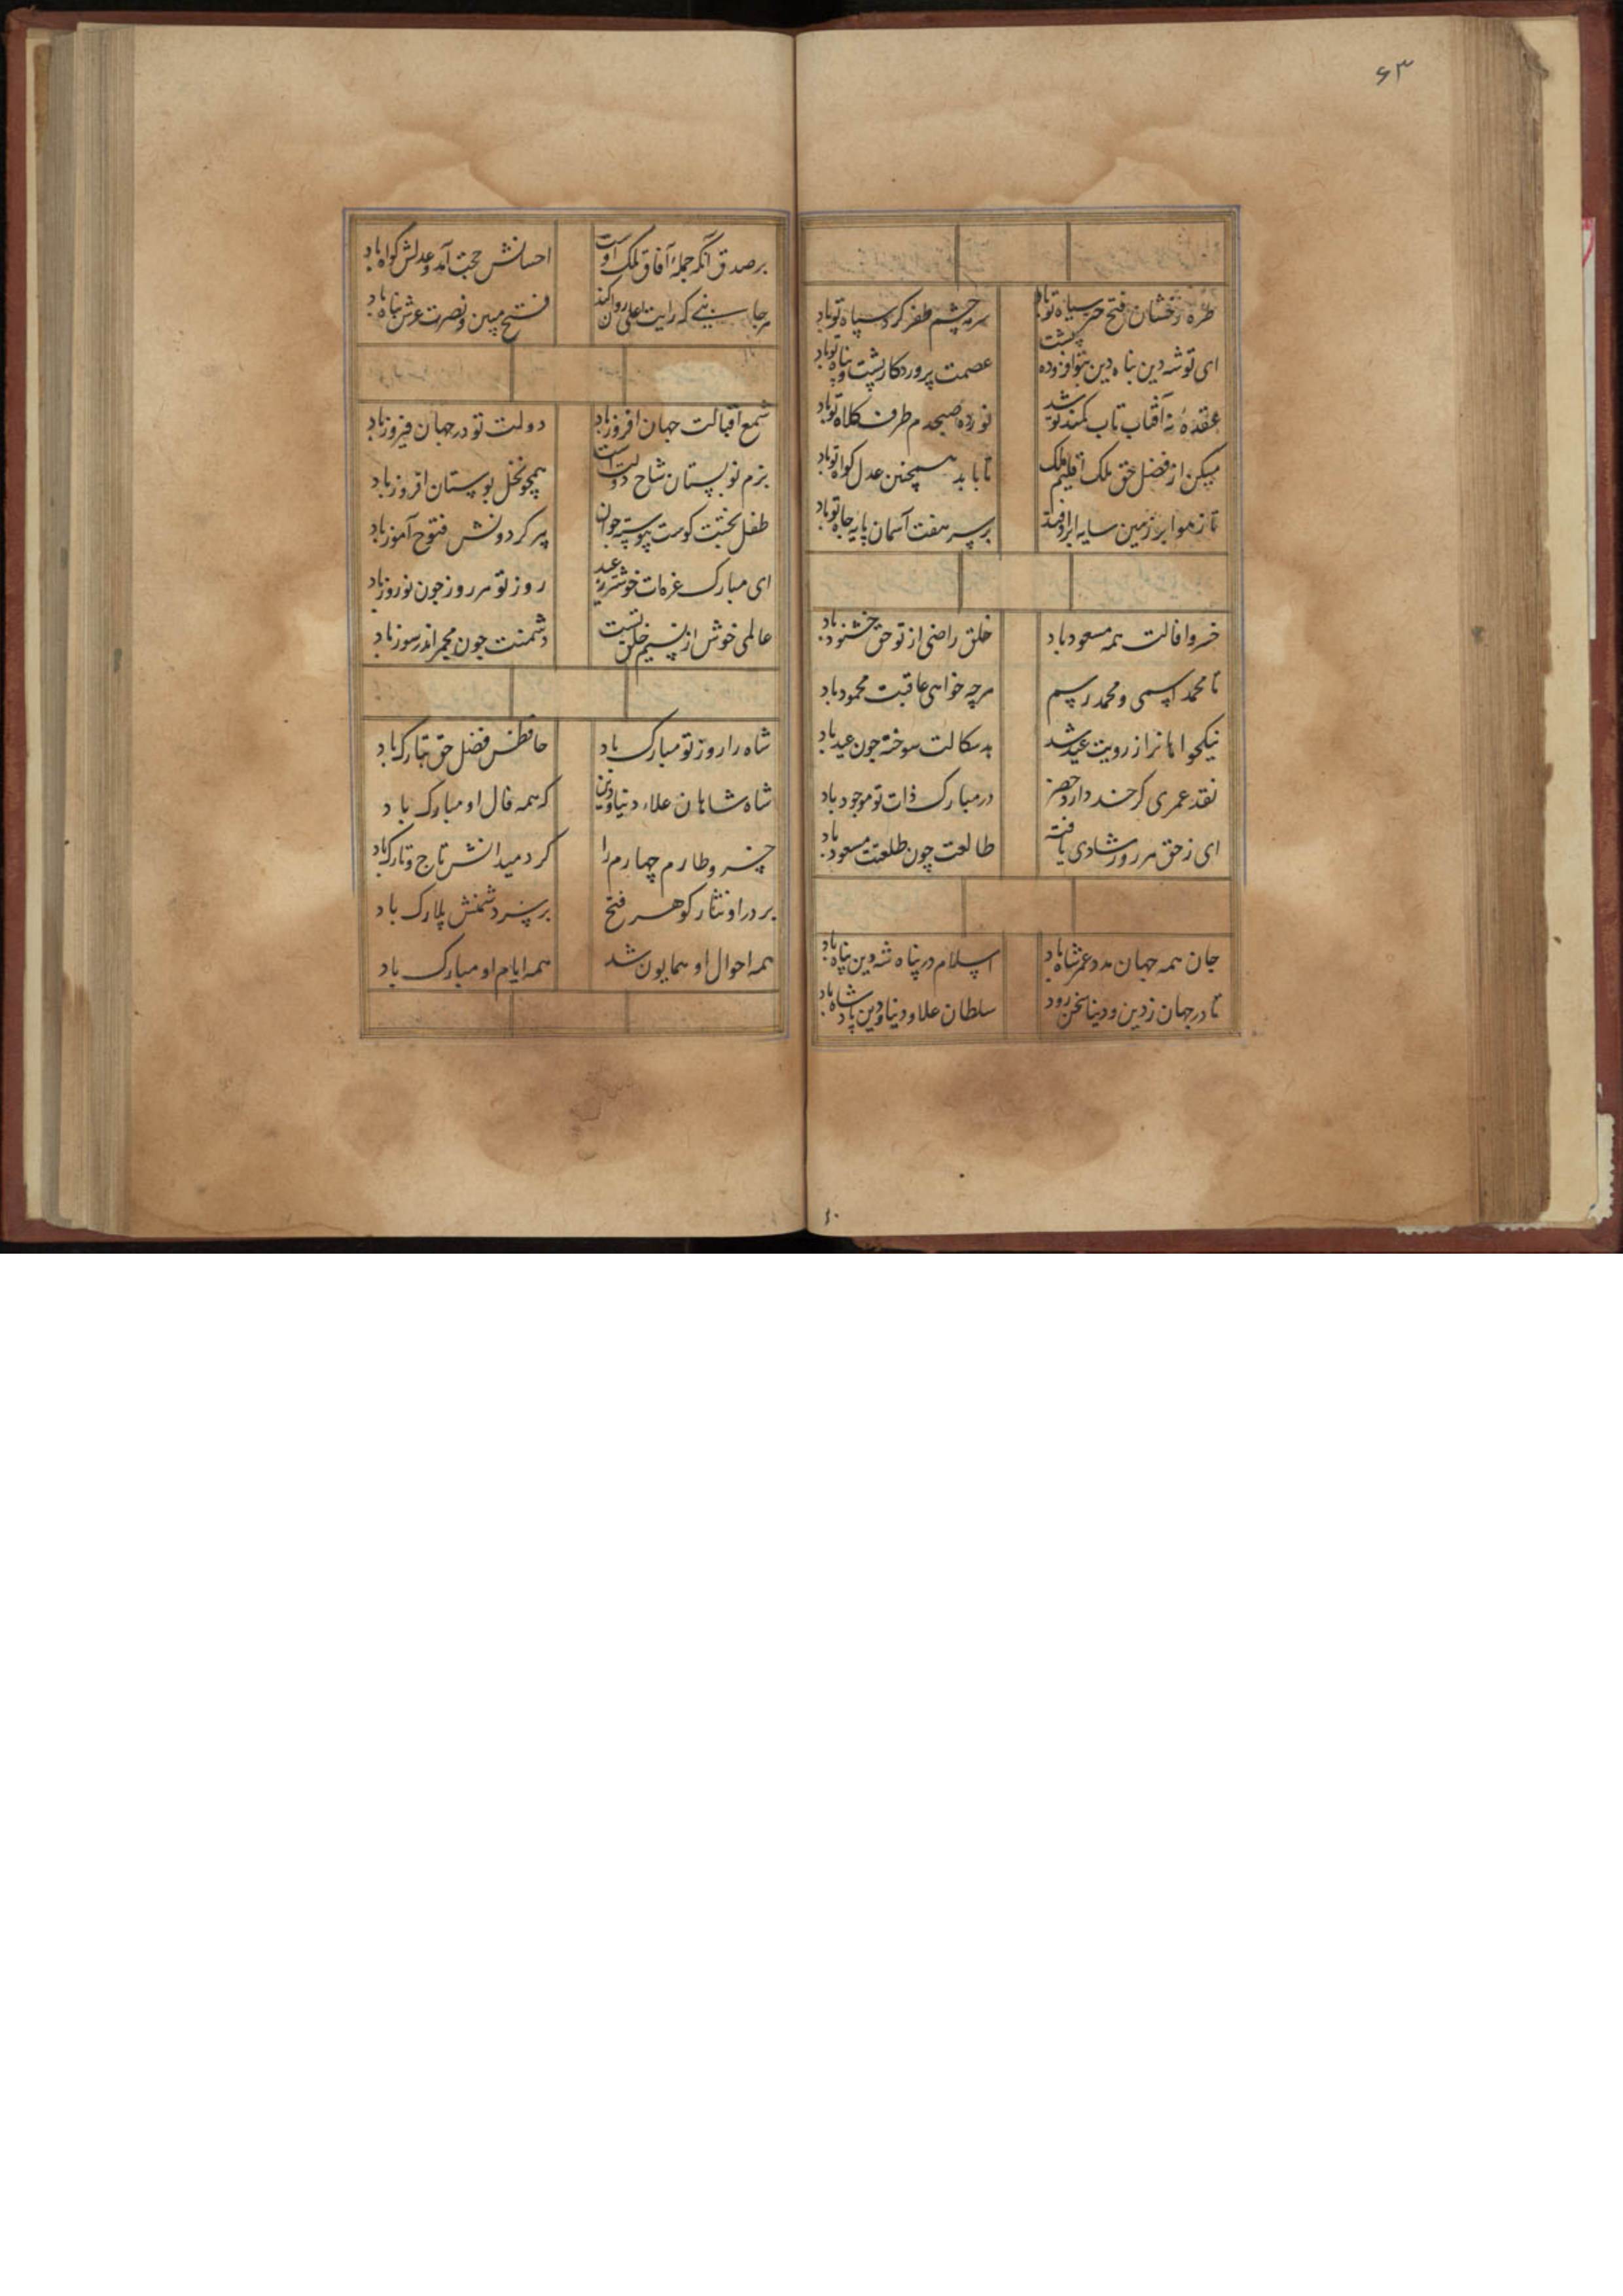 ۶۳
طره رخشان فتح چتر سیاه تو باد
سرمه چشم ظفر کرد سپاه تو باد
ای تو شه دین پناه دین بتو افزوده پشت
عصمت پروردکار پشت و پناه تو باد
عقده نه آفتاب تاب کمند تو شد
نور ده صبحدم طرف کلاه تو باد
میکن از فضل حق ملک اقلیم ملک
تا بابد همچنین عدل کواه تو باد
تا ز هوا بر زمین سایه ابر اوفتد
بر سر هفت آسمان پایه جاه تو باد
خسروا فالت همه مسعود باد
خلق راضی از تو حق خشنود باد
تا محمد اسمی و محمد رسم
هرچه خواهی عاقبت محمود باد
نیکخواهانرا از رویت عید شد
بدسکالت سوخته چون عید باد
نقد عمری کر خضر دارد
در مبارک ذات تو موجود باد
ای ز حق هر روز شادی یافته
طالعت چون طلعتت مسعود باد
جان همه جهان مدد عمر شاه باد
اسلام در پناه شه دین پناه باد
تا در جهان ز دین و دنیا سخن رود
سلطان علاء دنیا و دین پادشاه باد
بر صدق آنکه جمله آفاق ملک اوست
احسانش حجت آمد و عدلش کواه باد
هر جانبی که رایت اعلی روان کند
فتح مبین و نصرت عرش پناه باد
شمع اقبالت جهان افروز باد
دولت تو در جهان فیروز باد
بزم تو بستان شاخ دولت است
همچو نخل بوستان افروز باد
طفل بختت کوست پیوسته جوان
پیر کردونش فتوح آموز باد
ای مبارک غره‌ات خوشتر ز عید
روز تو هر روز چون نوروز باد
عالمی خوش از نسیم خلق تست
دشمنت چون مجمر اندر سوز باد
شاه را روز نو مبارک باد
حافظش فضل حق تبارک باد
شاه شاهان علاء دنیا و دین
که همه فال او مبارک باد
خسرو طارم چهارم را
کرد میدانش تاج و تارک باد
بر در او نثار کوهر فتح
بر سر دشمنش بلارک باد
همه احوال او همایون شد
همه ایام او مبارک باد